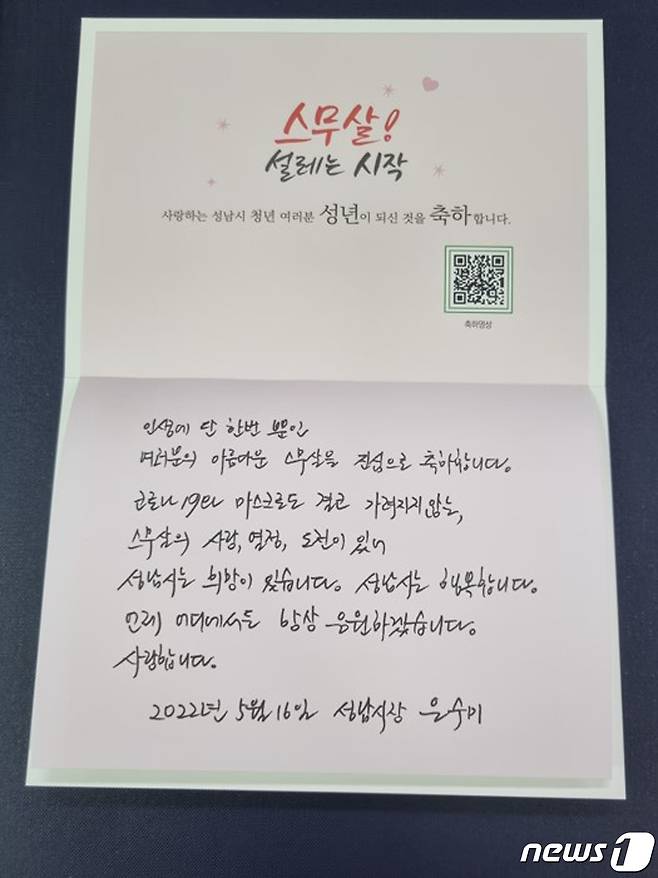 스무살!
설레는 시작
사랑하는 성남시 청년 여러분 성년이 되신 것을 축하합니다.
축하영상
인생에 단 한번 뿐인
여러분의 아름다운 스무살을 진심으로 축하합니다.
코로나19나 마스크로도 결코 가려지지 않는,
스무살의 사랑, 열정, 도전이 있어
성남시는 희망이 있습니다. 성남시는 행복합니다.
언제 어디에서든 항상 응원하겠습니다.
사랑합니다.
2022년 5월 16일 성남시장 은수미
news1